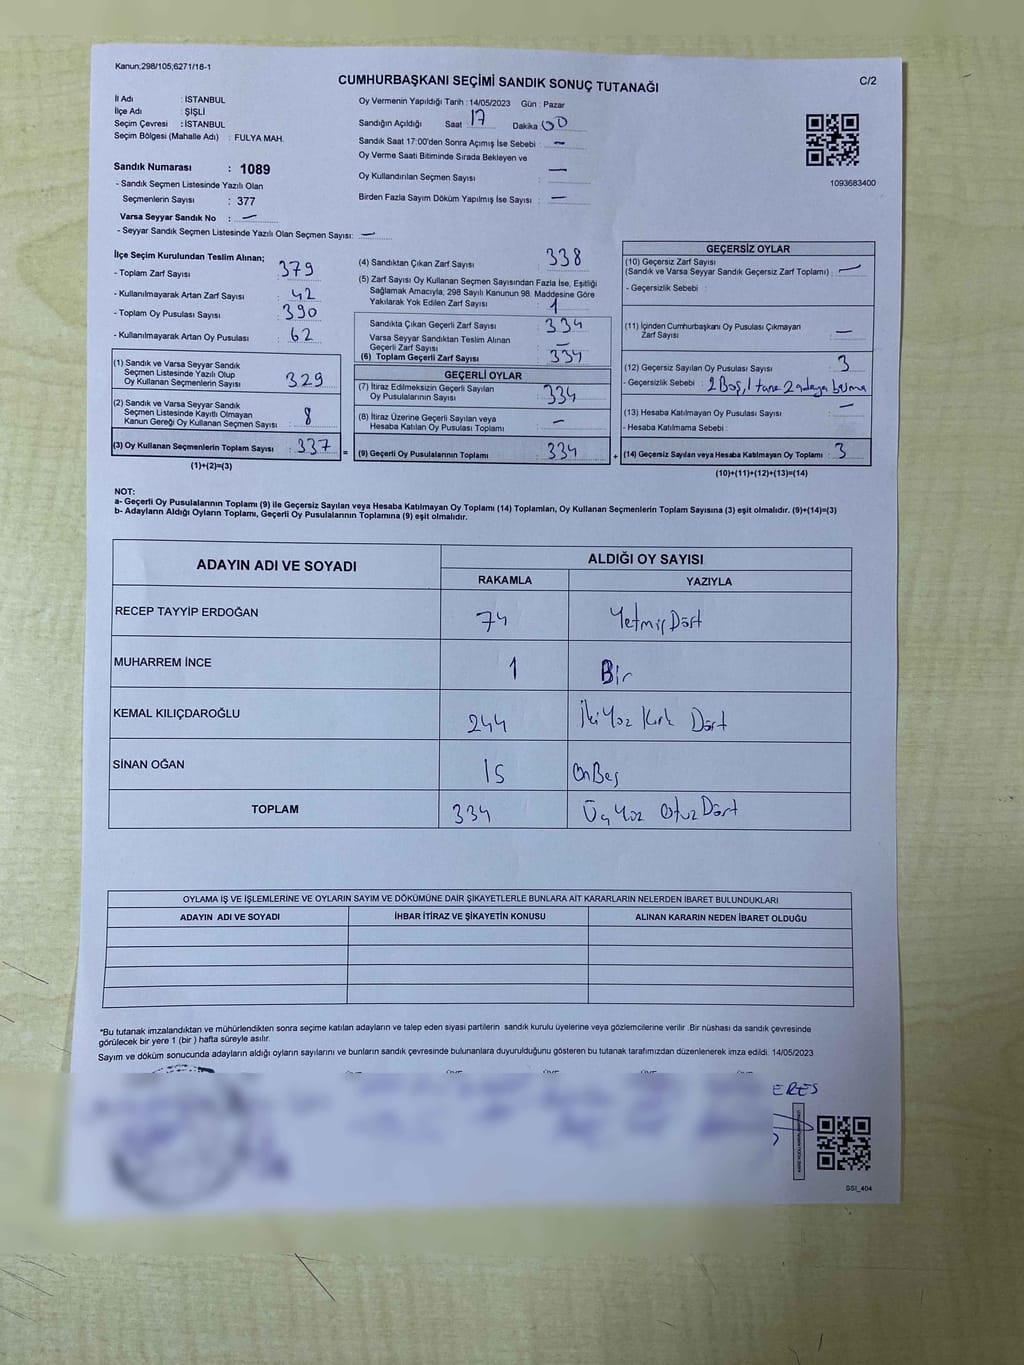 Kanun;298/105;6271/18-1
CUMHURBAŞKANI SEÇİMİ SANDIK SONUÇ TUTANAĞI
C/2
İl Adı : İSTANBUL
İlçe Adı : ŞİŞLİ
Seçim Çevresi : İSTANBUL
Seçim Bölgesi (Mahalle Adı) : FULYA MAH.
Sandık Numarası : 1089
- Sandık Seçmen Listesinde Yazılı Olan
Seçmenlerin Sayısı : 377
Varsa Seyyar Sandık No : —
- Seyyar Sandık Seçmen Listesinde Yazılı Olan Seçmen Sayısı: —
Oy Vermenin Yapıldığı Tarih : 14/05/2023 Gün : Pazar
Sandığın Açıldığı Saat 17 Dakika 00
Sandık Saat 17:00'den Sonra Açımış İse Sebebi : —
Oy Verme Saati Bitiminde Sırada Bekleyen ve
Oy Kullandırılan Seçmen Sayısı : —
Birden Fazla Sayım Döküm Yapılmış İse Sayısı : —
1093683400
İlçe Seçim Kurulundan Teslim Alınan;
- Toplam Zarf Sayısı : 379
- Kullanılmayarak Artan Zarf Sayısı : 42
- Toplam Oy Pusulası Sayısı : 390
- Kullanılmayarak Artan Oy Pusulası : 62
(1) Sandık ve Varsa Seyyar Sandık
Seçmen Listesinde Yazılı Olup
Oy Kullanan Seçmenlerin Sayısı : 329
(2) Sandık ve Varsa Seyyar Sandık
Seçmen Listesinde Kayıtlı Olmayan
Kanun Gereği Oy Kullanan Seçmen Sayısı : 8
(3) Oy Kullanan Seçmenlerin Toplam Sayısı : 337
(1)+(2)=(3)
(4) Sandıktan Çıkan Zarf Sayısı : 338
(5) Zarf Sayısı Oy Kullanan Seçmen Sayısından Fazla İse, Eşitliği
Sağlamak Amacıyla; 298 Sayılı Kanunun 98. Maddesine Göre
Yakılarak Yok Edilen Zarf Sayısı : 1
Sandıkta Çıkan Geçerli Zarf Sayısı : 334
Varsa Seyyar Sandıktan Teslim Alınan
Geçerli Zarf Sayısı : —
(6) Toplam Geçerli Zarf Sayısı : 334
GEÇERLİ OYLAR
(7) İtiraz Edilmeksizin Geçerli Sayılan
Oy Pusulalarının Sayısı : 334
(8) İtiraz Üzerine Geçerli Sayılan veya
Hesaba Katılan Oy Pusulası Toplamı : —
= (9) Geçerli Oy Pusulalarının Toplamı : 334
GEÇERSİZ OYLAR
(10) Geçersiz Zarf Sayısı
(Sandık ve Varsa Seyyar Sandık Geçersiz Zarf Toplamı) : —
- Geçersizlik Sebebi :
(11) İçinden Cumhurbaşkanı Oy Pusulası Çıkmayan
Zarf Sayısı : —
(12) Geçersiz Sayılan Oy Pusulası Sayısı : 3
- Geçersizlik Sebebi : 2 Boş, 1 tane 2 adaya basma
(13) Hesaba Katılmayan Oy Pusulası Sayısı : —
- Hesaba Katılmama Sebebi :
+ (14) Geçersiz Sayılan veya Hesaba Katılmayan Oy Toplamı : 3
(10)+(11)+(12)+(13)=(14)
NOT:
a- Geçerli Oy Pusulalarının Toplamı (9) ile Geçersiz Sayılan veya Hesaba Katılmayan Oy Toplamı (14) Toplamları, Oy Kullanan Seçmenlerin Toplam Sayısına (3) eşit olmalıdır. (9)+(14)=(3)
b- Adayların Aldığı Oyların Toplamı, Geçerli Oy Pusulalarının Toplamına (9) eşit olmalıdır.
ADAYIN ADI VE SOYADI
ALDIĞI OY SAYISI
RAKAMLA YAZIYLA
RECEP TAYYİP ERDOĞAN 74 YetmişDört
MUHARREM İNCE 1 Bir
KEMAL KILIÇDAROĞLU 244 İki Yüz Kırk Dört
SİNAN OĞAN 15 OnBeş
TOPLAM 334 Üç Yüz Otuz Dört
OYLAMA İŞ VE İŞLEMLERİNE VE OYLARIN SAYIM VE DÖKÜMÜNE DAİR ŞİKAYETLERLE BUNLARA AİT KARARLARIN NELERDEN İBARET BULUNDUKLARI
ADAYIN ADI VE SOYADI İHBAR İTİRAZ VE ŞİKAYETİN KONUSU ALINAN KARARIN NEDEN İBARET OLDUĞU
*Bu tutanak imzalandıktan ve mühürlendikten sonra seçime katılan adayların ve talep eden siyasi partilerin sandık kurulu üyelerine veya gözlemcilerine verilir .Bir nüshası da sandık çevresinde
görülecek bir yere 1 (bir ) hafta süreyle asılır.
Sayım ve döküm sonucunda adayların aldığı oyların sayılarını ve bunların sandık çevresinde bulunanlara duyurulduğunu gösteren bu tutanak tarafımızdan düzenlenerek imza edildi. 14/05/2023
ERES
SSI_404